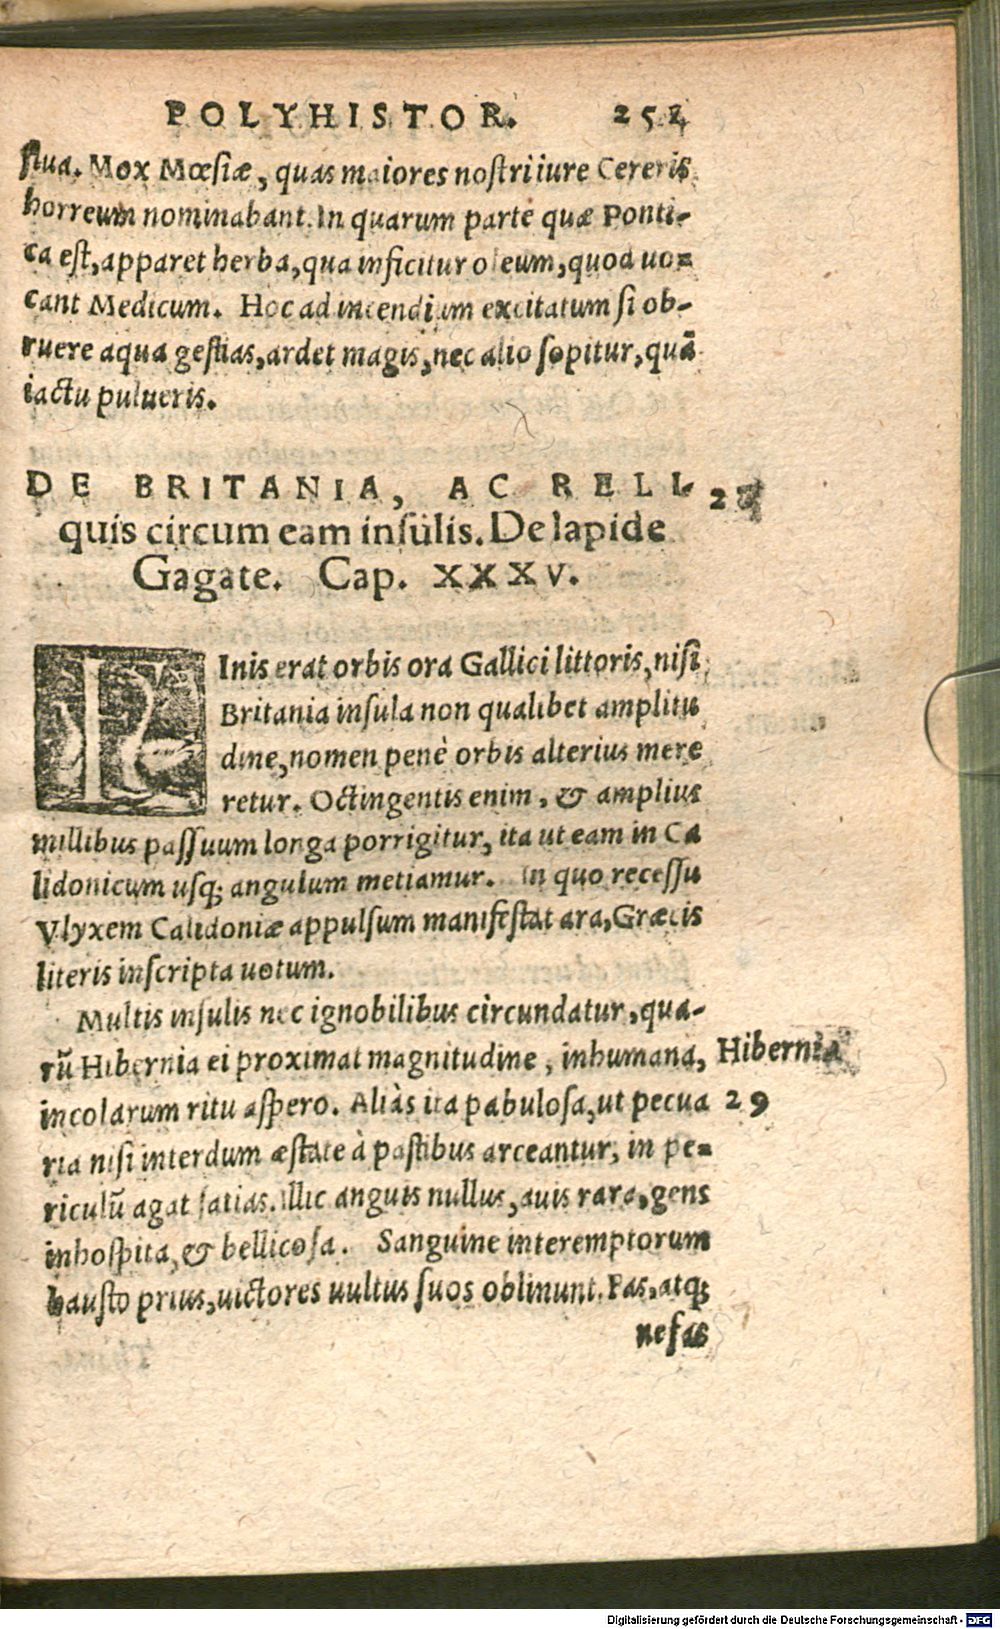 POLYHISTOR. 251
ſtua. Mox Mœſiæ, quas maiores noſtri iure Cereris
horreum nominabant. In quarum parte quæ Ponti-
ca eſt, apparet herba, qua inficitur oleum, quod uo=
cant Medicum. Hoc ad incendium excitatum ſi ob-
ruere aqua geſtias, ardet magis, nec alio ſopitur, quã
iactu pulueris.
DE BRITANIA, AC RELI- 28
quis circum eam inſulis. De lapide
Gagate. Cap. XXXV.
FInis erat orbis ora Gallici littoris, niſi
Britania inſula non qualibet amplitu
dine, nomen penè orbis alterius mere
retur. Octingentis enim, & amplius
millibus paſſuum longa porrigitur, ita ut eam in Ca
lidonicum uſq; angulum metiamur. In quo receſſu
Vlyxem Calidoniæ appulſum manifeſtat ara, Græcis
literis inſcripta uotum.
Multis inſulis nec ignobilibus circundatur, qua-
rũ Hibernia ei proximat magnitudine, inhumana, Hibernia
incolarum ritu aſpero. Aliàs ita pabuloſa, ut pecua 29
ria niſi interdum æſtate à paſtibus arceantur, in pe=
riculũ agat ſatias. Illic anguis nullus, auis rara, gens
inhoſpita, & bellicoſa. Sanguine interemptorum
hauſto prius, uictores uultus ſuos oblinunt. Fas, atq;
nefas
Digitalisierung gefördert durch die Deutsche Forschungsgemeinschaft - DFG